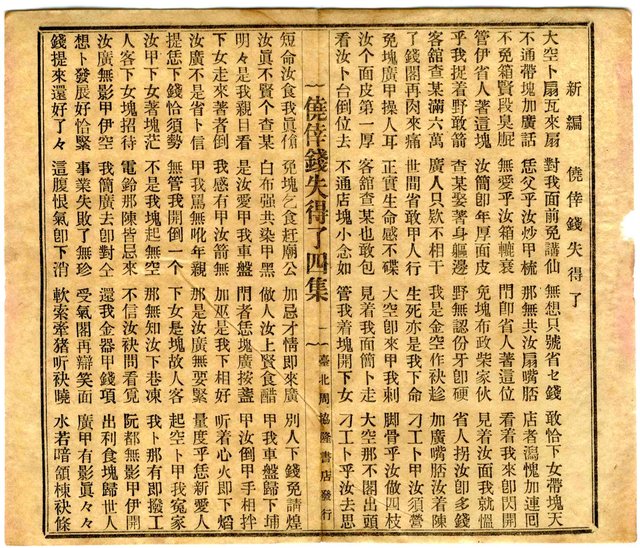 新編　僥倖錢失得了
大空卜扇瓦來扇　對我面前免講仙　無想只號省七錢　敢恰下女帶塊天
不通帶塊加廣話　恁父乎汝炒甲梳　那無共汝扇嘴䫌　店者瀉愧加連回
不免箱賢段臭腚　無愛乎汝箱轆衰　門卽省人著這位　看着我來卽閃開
管伊省人著這塊　汝簡卽年厚面皮　免塊布政柴家伙　見着汝面我就慍
乎我捉着野敢箭　查某娶著身軀邊　野無認份牙卽硬　省人拐汝卽多錢
客舘查某滿六萬　廣人只欵不相干　我是金空作袂趁　加廣嘴䫌汝着陳
了錢閣再肉來痛　世間省敢甲人行　生死亦是我下命　刁工卜甲汝須營
免塊廣甲操人耳　正實生命感不碟　大空卽來甲我刺　脚骨乎汝做四枝
汝个面皮第一厚　客舘查某也敢包　見着我面簡卜走　大空那不閣出頭
看汝卜台倒位去　不通店塊小念如　管我着塊開下女　刁工卜乎汝去思
僥倖錢失得了四集　一　臺北周協隆書店發行
短命汝食我眞俻　免塊乞食赶廟公　加忌才情即來廣　別人下錢免請煌
汝眞不賢个查某　白布强共染甲黑　做人汝上賢食醋　甲我車盤歸下埔
明々是我親日看　是汝愛甲我車盤　門者恁塊廣按盞　甲汝倒甲手相拌
下女走來著者倒　我感有甲汝箭無　加巫是我下相好　听着心火即下熖
汝廣不是省卜信　甲我罵無吪年親　那是汝廣無要緊　量度乎恁新愛人
提恁下錢恰須勢　無管我開倒一个　下女是塊故人客　起空卜甲我寃家
汝甲下女著塊茫　不是我塊起無空　那無知汝下巷凍　我卜那有即撥工
人客下女塊招待　電鈴那陳皆忌來　不信汝袂問看覓　阮都無影甲伊開
汝廣無影甲伊空　我簡廣去卽對仝　還我金器甲錢項　出利食塊歸世人
想卜發展好恰緊　事業失敗了無珍　受氣閣再辯笑面　廣甲有影眞々々
錢提來還好了々　這腹恨氣卽下消　軟索牽猪听袂曉　水若喑領棟袂條